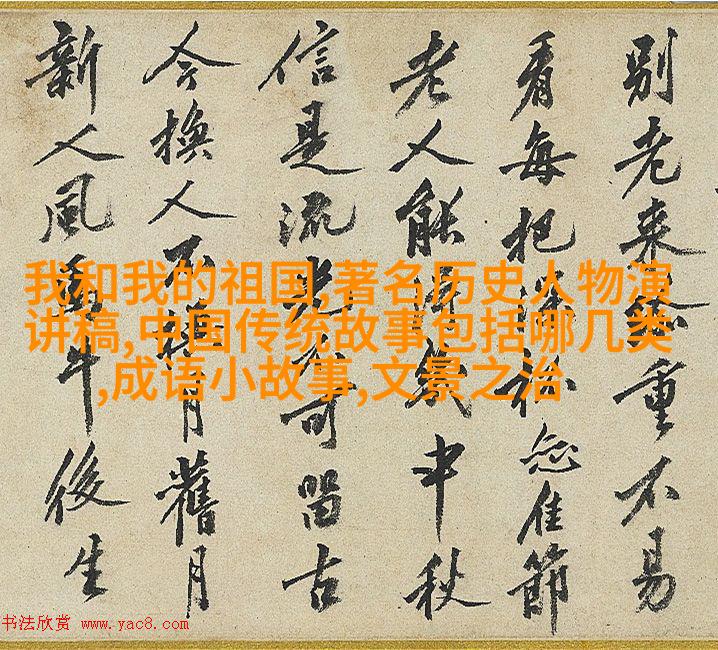 别老来重不易
看每把佳節
老人能得幾中秋
信是流光不可留古
今換人不換月舊月
新人風後生
我和我的祖国,著名历史人物演
讲稿,中国传统故事包括哪几类
,成语小故事,文景之治
书法欣赏 www.yac8.com